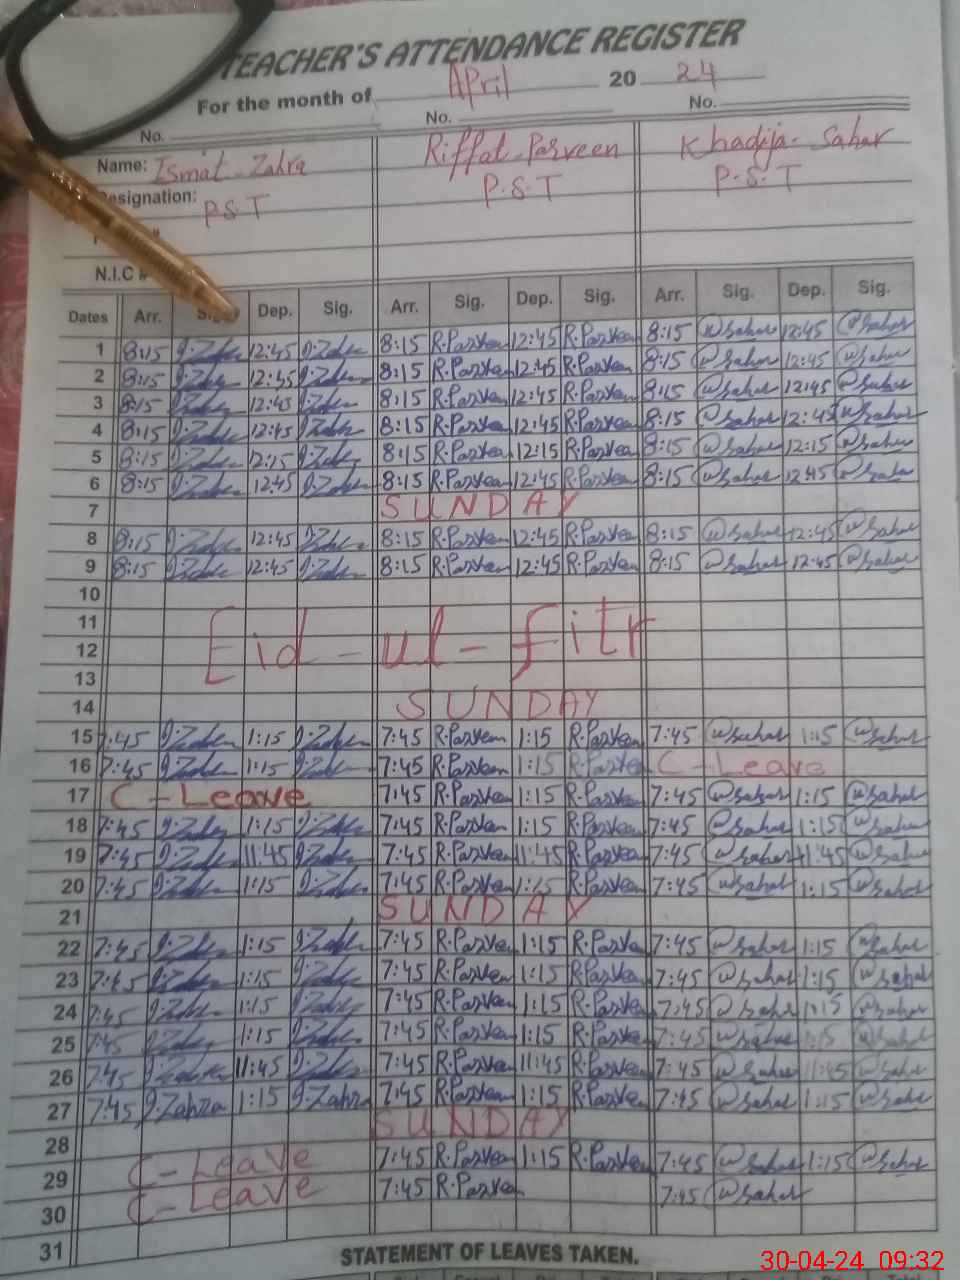 TEACHER'S ATTENDANCE REGISTER
For the month of April 20 24
No. No. No.
Name: Ismat Zahra Riffat Parveen Khadija Sahar
Designation: P.S.T P.S.T P.S.T
N.I.C #
Dates Arr. Sig. Dep. Sig. Arr. Sig. Dep. Sig. Arr. Sig. Dep. Sig.
1 8:15 I.Zahra 12:45 I.Zahra 8:15 R.Parveen 12:45 R.Parveen 8:15 @Sahar 12:45 @Sahar
2 8:15 I.Zahra 12:45 I.Zahra 8:15 R.Parveen 12:45 R.Parveen 8:15 @Sahar 12:45 @Sahar
3 8:15 I.Zahra 12:45 I.Zahra 8:15 R.Parveen 12:45 R.Parveen 8:15 @Sahar 12:45 @Sahar
4 8:15 I.Zahra 12:45 I.Zahra 8:15 R.Parveen 12:45 R.Parveen 8:15 @Sahar 12:45 @Sahar
5 8:15 I.Zahra 12:15 I.Zahra 8:15 R.Parveen 12:15 R.Parveen 8:15 @Sahar 12:15 @Sahar
6 8:15 I.Zahra 12:45 I.Zahra 8:15 R.Parveen 12:45 R.Parveen 8:15 @Sahar 12:45 @Sahar
7 SUNDAY
8 8:15 I.Zahra 12:45 I.Zahra 8:15 R.Parveen 12:45 R.Parveen 8:15 @Sahar 12:45 @Sahar
9 8:15 I.Zahra 12:45 I.Zahra 8:15 R.Parveen 12:45 R.Parveen 8:15 @Sahar 12:45 @Sahar
10
11
12 Eid-ul-Fitr
13
14 SUNDAY
15 7:45 I.Zahra 1:15 I.Zahra 7:45 R.Parveen 1:15 R.Parveen 7:45 @Sahar 1:15 @Sahar
16 7:45 I.Zahra 1:15 I.Zahra 7:45 R.Parveen 1:15 R.Parveen C-Leave
17 C-Leave 7:45 R.Parveen 1:15 R.Parveen 7:45 @Sahar 1:15 @Sahar
18 7:45 I.Zahra 1:15 I.Zahra 7:45 R.Parveen 1:15 R.Parveen 7:45 @Sahar 1:15 @Sahar
19 7:45 I.Zahra 11:45 I.Zahra 7:45 R.Parveen 11:45 R.Parveen 7:45 @Sahar 11:45 @Sahar
20 7:45 I.Zahra 1:15 I.Zahra 7:45 R.Parveen 1:15 R.Parveen 7:45 @Sahar 1:15 @Sahar
21 SUNDAY
22 7:45 I.Zahra 1:15 I.Zahra 7:45 R.Parveen 1:15 R.Parveen 7:45 @Sahar 1:15 @Sahar
23 7:45 I.Zahra 1:15 I.Zahra 7:45 R.Parveen 1:15 R.Parveen 7:45 @Sahar 1:15 @Sahar
24 7:45 I.Zahra 1:15 I.Zahra 7:45 R.Parveen 1:15 R.Parveen 7:45 @Sahar 1:15 @Sahar
25 7:45 I.Zahra 1:15 I.Zahra 7:45 R.Parveen 1:15 R.Parveen 7:45 @Sahar 1:15 @Sahar
26 7:45 I.Zahra 11:45 I.Zahra 7:45 R.Parveen 11:45 R.Parveen 7:45 @Sahar 11:45 @Sahar
27 7:45 I.Zahra 1:15 I.Zahra 7:45 R.Parveen 1:15 R.Parveen 7:45 @Sahar 1:15 @Sahar
28 SUNDAY
29 C-Leave 7:45 R.Parveen 1:15 R.Parveen 7:45 @Sahar 1:15 @Sahar
30 C-Leave 7:45 R.Parveen 7:45 @Sahar
31
STATEMENT OF LEAVES TAKEN.
30-04-24 09:32